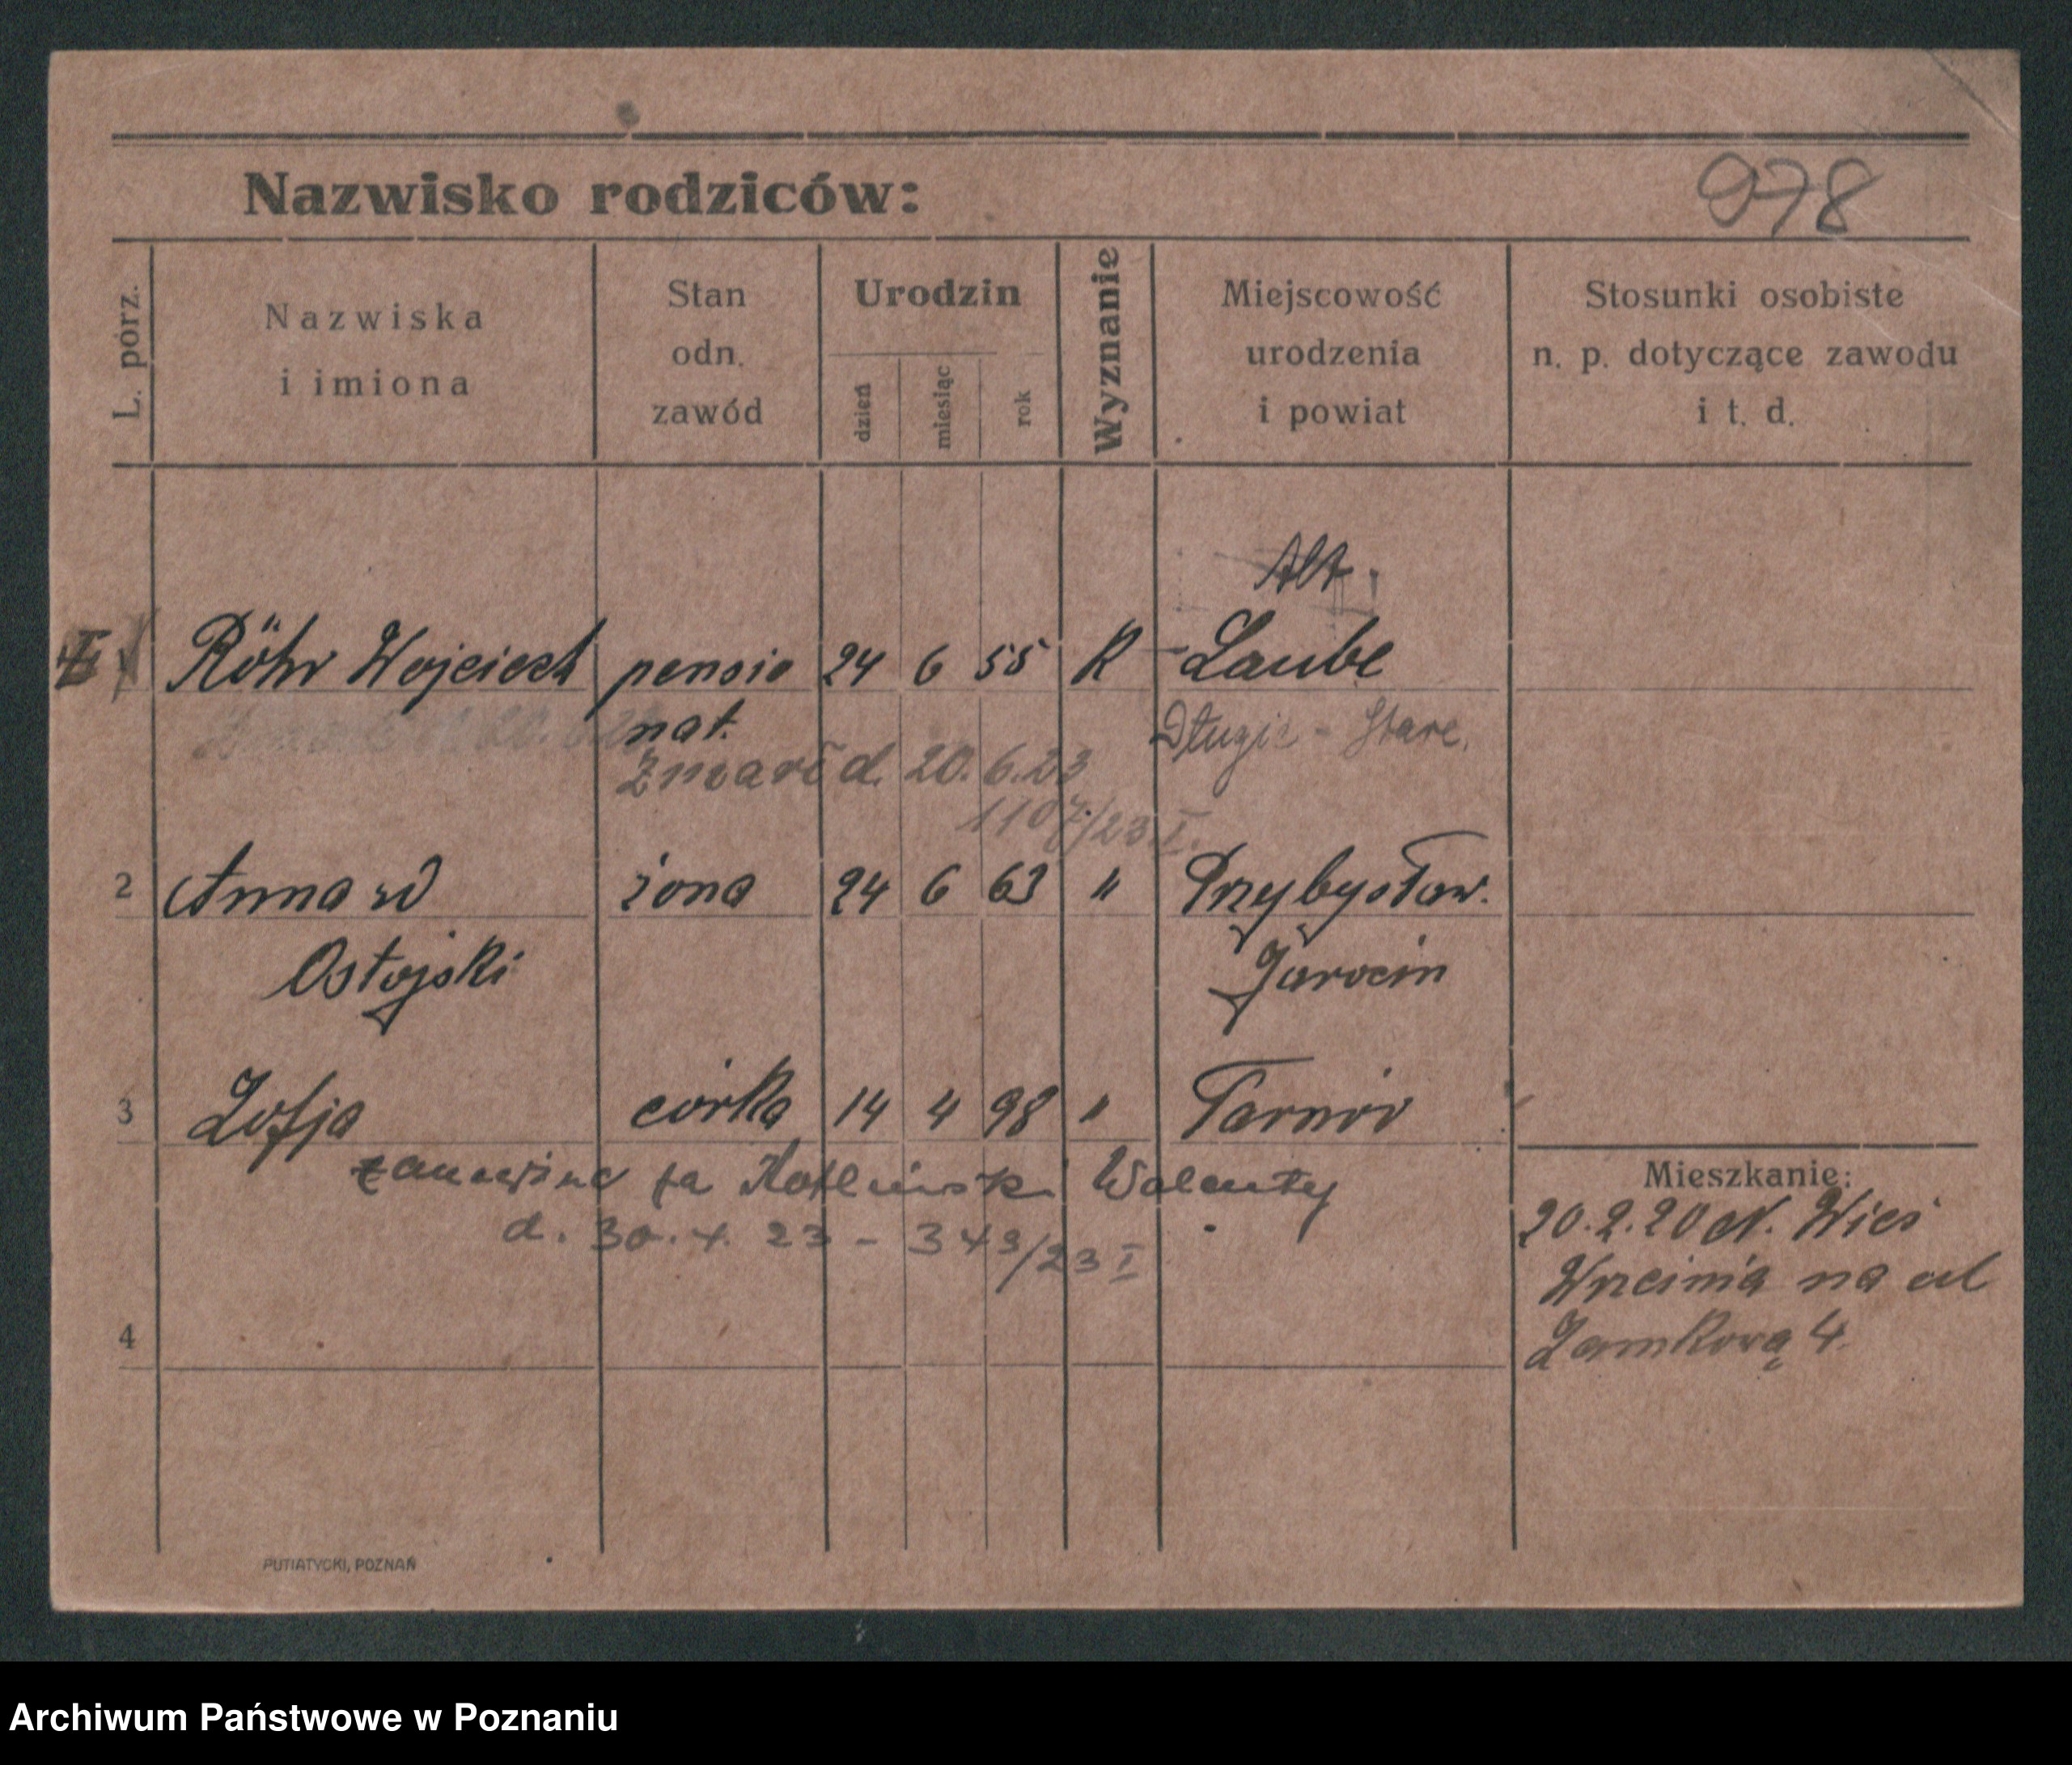 Nazwisko rodziców:
978
L. porz.
Nazwiska
i imiona
Stan
odn.
zawód
Urodzin
dzień
miesiąc
rok
Wyznanie
Miejscowość
urodzenia
i powiat
Stosunki osobiste
n. p. dotyczące zawodu
i t. d.
Alt
Röhr Wojciech pensio 24 6 55 R - Laube
nat.
Długie - Stare.
Zmarł d. 20.6.23
1107/23 I.
2 Anna w żona 24 6 63 " Przybysław.
Ostojski Jarocin
3 Zofja córka 14 4 98 " Tarnów
za Walenty
d. 30. 4. 23 - 349/23 I
Mieszkanie:
20.2.20 Wieś
Września na ul
Zamkową 4.
4
PUTIATYCKI, POZNAŃ
Archiwum Państwowe w Poznaniu